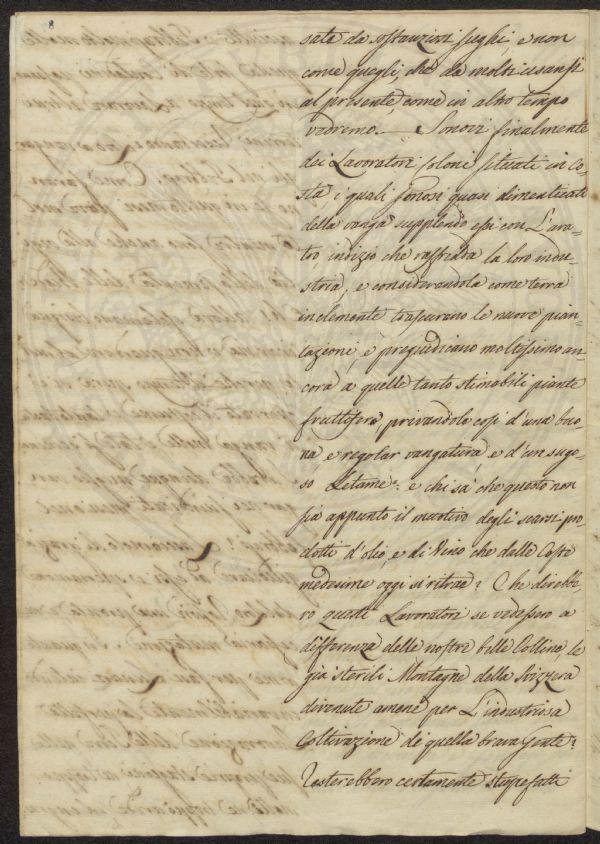 8
sate da sostanzion seghi, e non
come quegli, che da molti usansi
al presente, come in altro tempo
vedremo. — Sonovi finalmente
dei Lavoratori, coloni situati in Co-
sta, i quali sonosi quasi dimenticati
della vanga supplendo essi con L'ara-
tro, indizio che raffredda la loro indu-
stria, e considerandola come terra
inclemente trascurano le nuove pian-
tazioni, e pregiudicano moltissimo an-
cora a quelle tanto stimabili piante
fruttifere, privandole così d'una buo-
na, e regolar vangatura, e d'un sugo-
so Letame: e chi sà che questo non
sia appunto il motivo degli scarsi pro-
dotti d'olio, e di Vino che dalle Coste
medesime oggi si ritrae? Che direbbe-
ro questi Lavoratori se vedessero a
differenza delle nostre belle Colline, le
già sterili Montagne della Svizzera
divenute amene per L'industriosa
Coltivazione di quella brava Gente?
Resterebbero certamente stupefatti